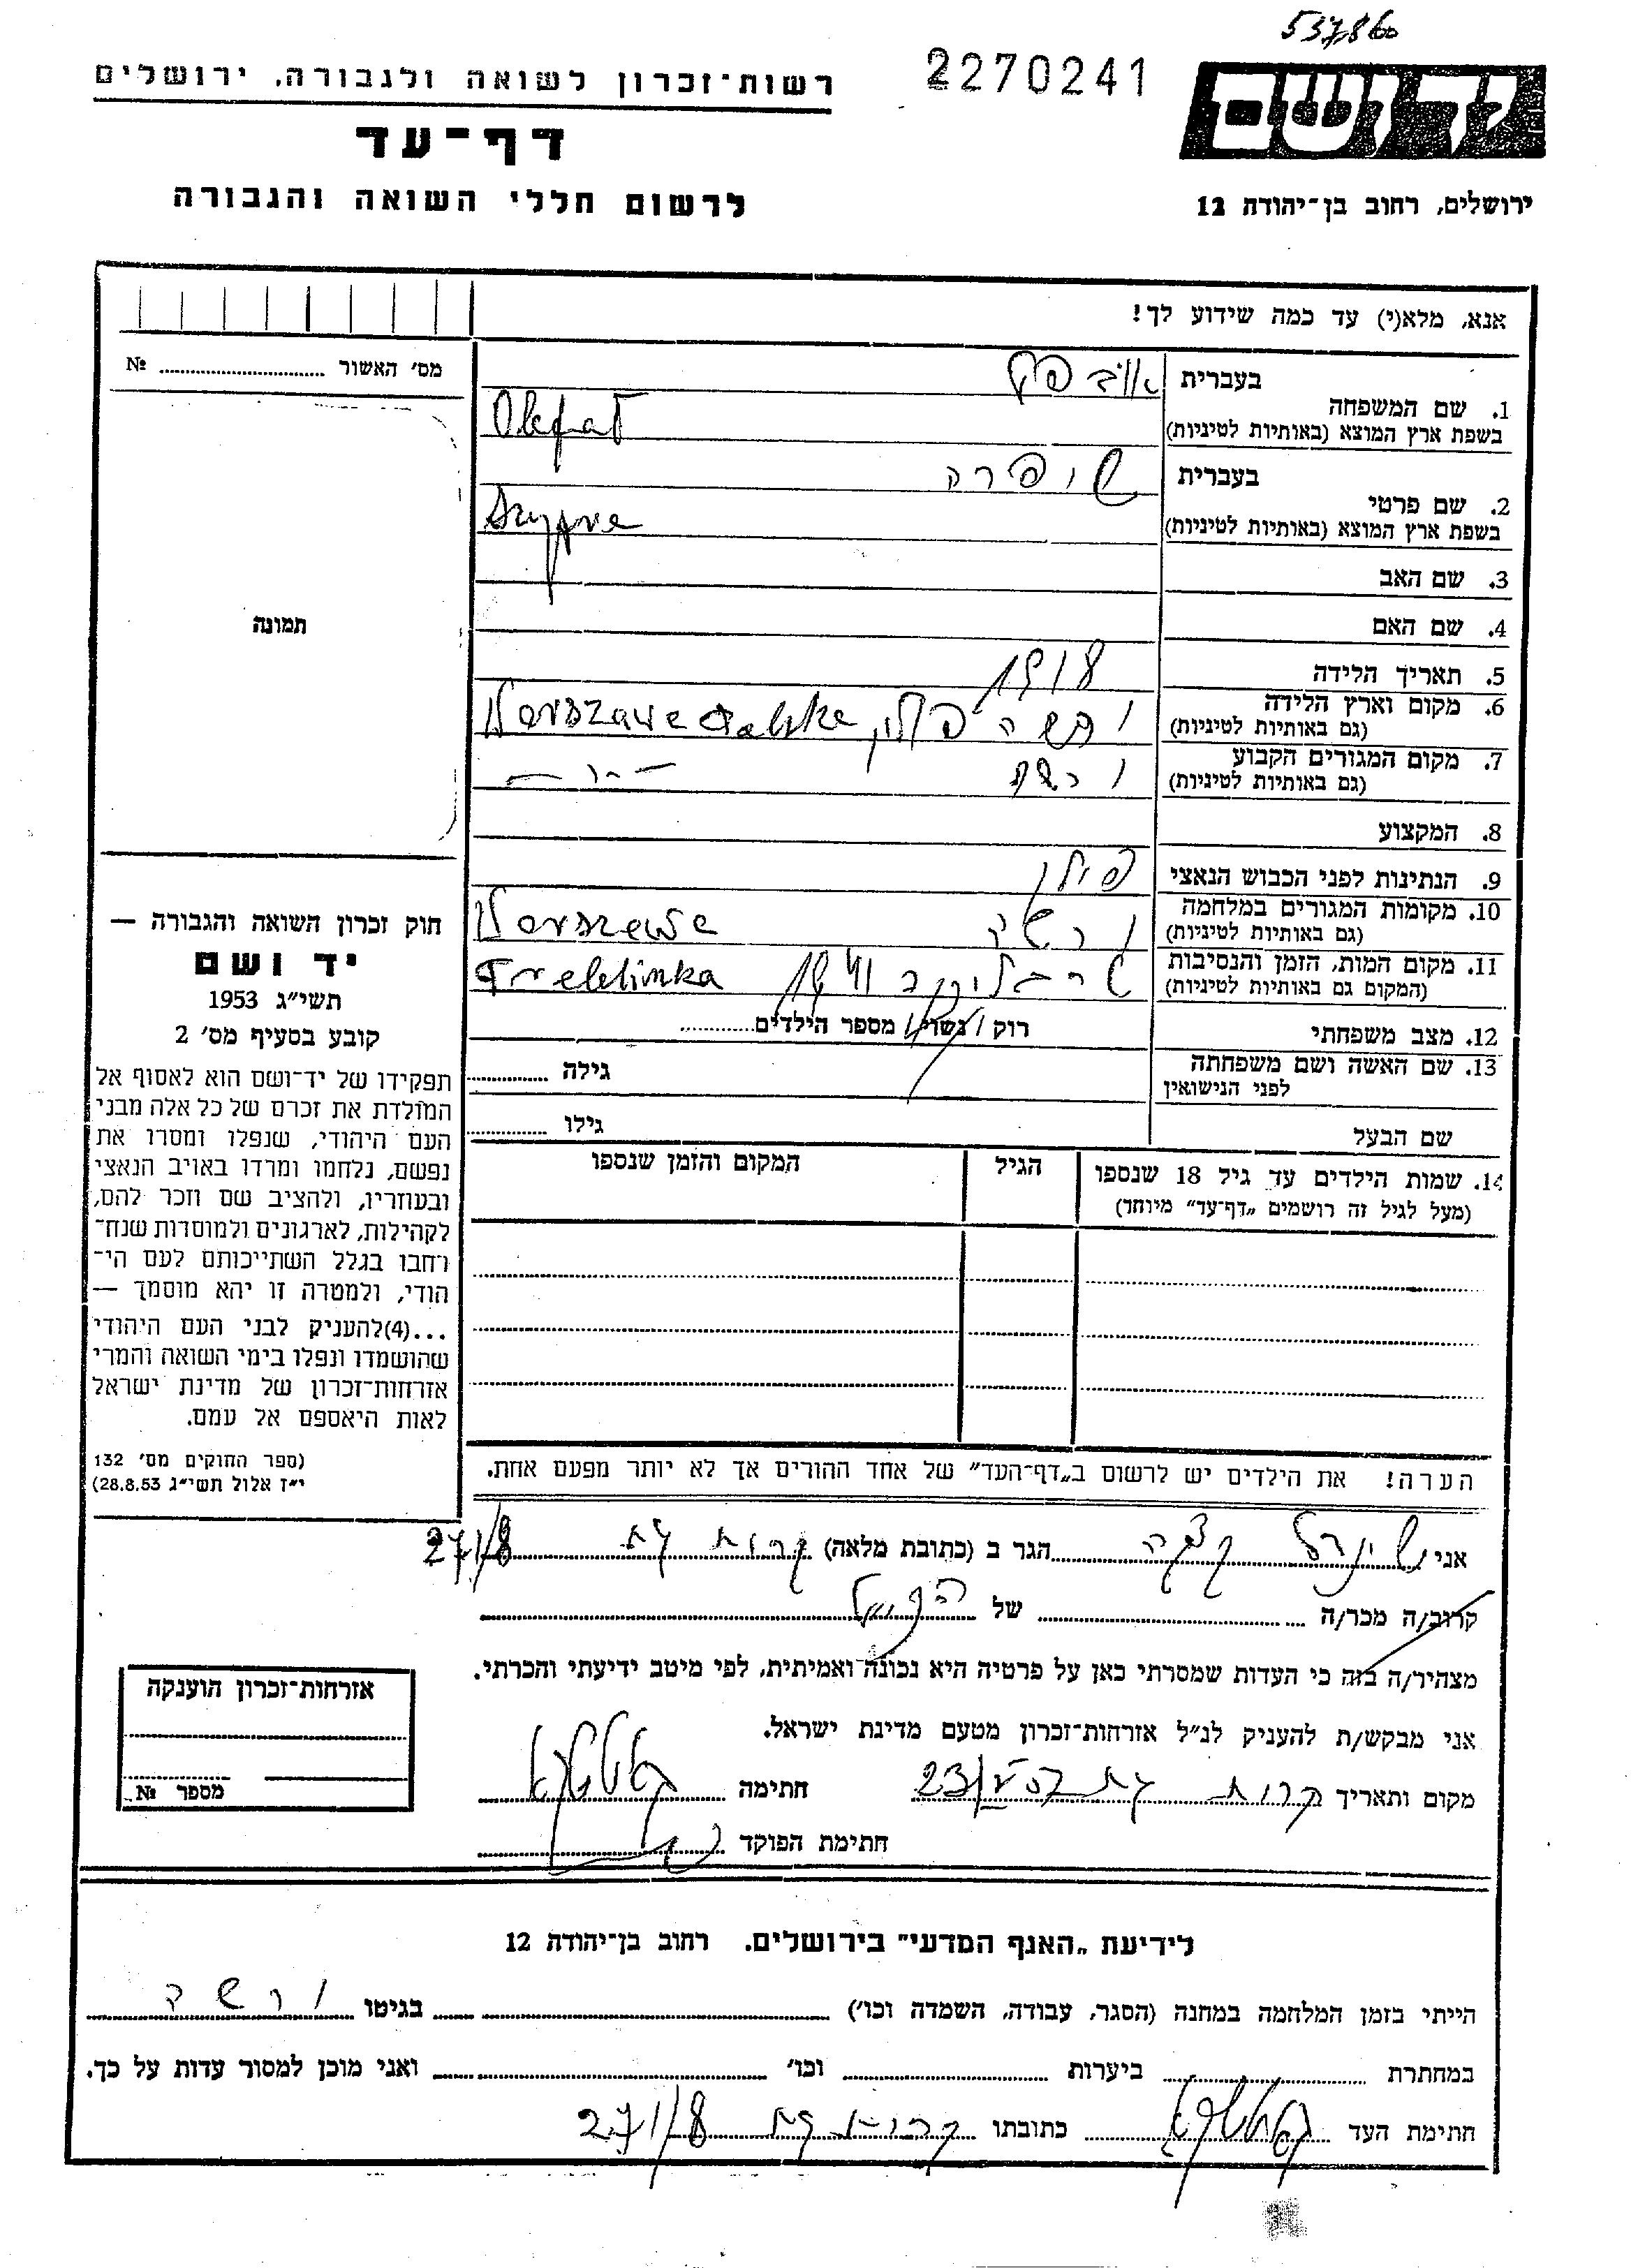 537860
2270241
רשות־זכרון לשואה ולגבורה, ירושלים
יד ושם
דף־עד
לרשום חללי השואה והגבורה
ירושלים, רחוב בן־יהודה 12
אנא, מלא(י) עד כמה שידוע לך!
מס׳ האשור ........ №
בעברית
1. שם המשפחה
בשפת ארץ המוצא (באותיות לטיניות)
בעברית שיפרה
2. שם פרטי
בשפת ארץ המוצא (באותיות לטיניות)
3. שם האב
4. שם האם
תמונה
5. תאריך הלידה 1918
6. מקום וארץ הלידה ורשה פולין, Warszawa Polska
(גם באותיות לטיניות)
7. מקום המגורים הקבוע ורשה
(גם באותיות לטיניות)
8. המקצוע
9. הנתינות לפני הכבוש הנאצי פולין
10. מקומות המגורים במלחמה ורשה Warszawa
(גם באותיות לטיניות)
11. מקום המות, הזמן והנסיבות טרבלינקה 1941 Treblinka
(המקום גם באותיות לטיניות)
12. מצב משפחתי רוק / נשוי / מספר הילדים........
13. שם האשה ושם משפחתה לפני הנישואין גילה ........
שם הבעל גילו ........
14. שמות הילדים עד גיל 18 שנספו הגיל המקום והזמן שנספו
(מעל לגיל זה רושמים „דף־עד״ מיוחד)
חוק זכרון השואה והגבורה —
יד ושם
תשי״ג 1953
קובע בסעיף מס׳ 2
תפקידו של יד־ושם הוא לאסוף אל
המולדת את זכרם של כל אלה מבני
העם היהודי, שנפלו ומסרו את
נפשם, נלחמו ומרדו באויב הנאצי
ובעוזריו, ולהציב שם וזכר להם,
לקהילות, לארגונים ולמוסדות שנח־
רחבו בגלל השתייכותם לעם הי־
הודי, ולמטרה זו יהא מוסמך —
...(4)להעניק לבני העם היהודי
שהושמדו ונפלו בימי השואה והמרי
אזרחות־זכרון של מדינת ישראל
לאות היאספם אל עמם.
(ספר החוקים מס׳ 132
י״ז אלול תשי״ג 28.8.53)
הערה! את הילדים יש לרשום ב„דף־העד״ של אחד ההורים אך לא יותר מפעם אחת.
אני הגר ב (כתובת מלאה) קרית גת 27/8
קרוב/ה מכר/ה ........ של
מצהיר/ה בזה כי העדות שמסרתי כאן על פרטיה היא נכונה ואמיתית, לפי מיטב ידיעתי והכרתי.
אני מבקש/ת להעניק לנ״ל אזרחות־זכרון מטעם מדינת ישראל.
מקום ותאריך קרית גת חתימה
חתימת הפוקד
אזרחות־זכרון הוענקה
מספר №
לידיעת „האגף המדעי״ בירושלים. רחוב בן־יהודה 12
הייתי בזמן המלחמה במחנה (הסגר, עבודה, השמדה וכו׳) ........ בגיטו ורשה
במחתרת ........ ביערות ........ וכו׳ ........ ואני מוכן למסור עדות על כך.
חתימת העד כתובתו קרית גת 27/8